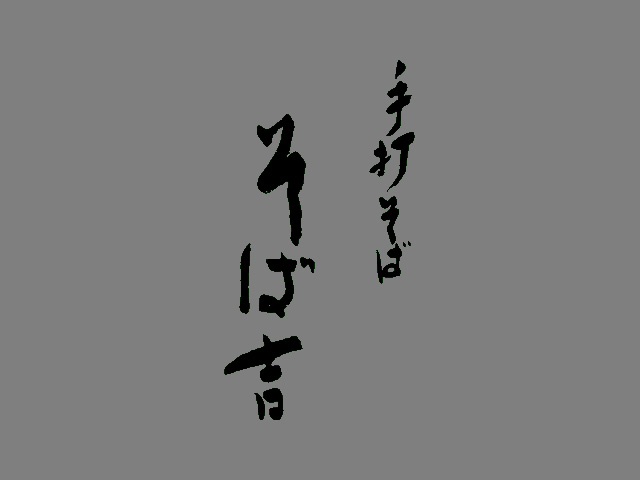 手打そば
そば吉